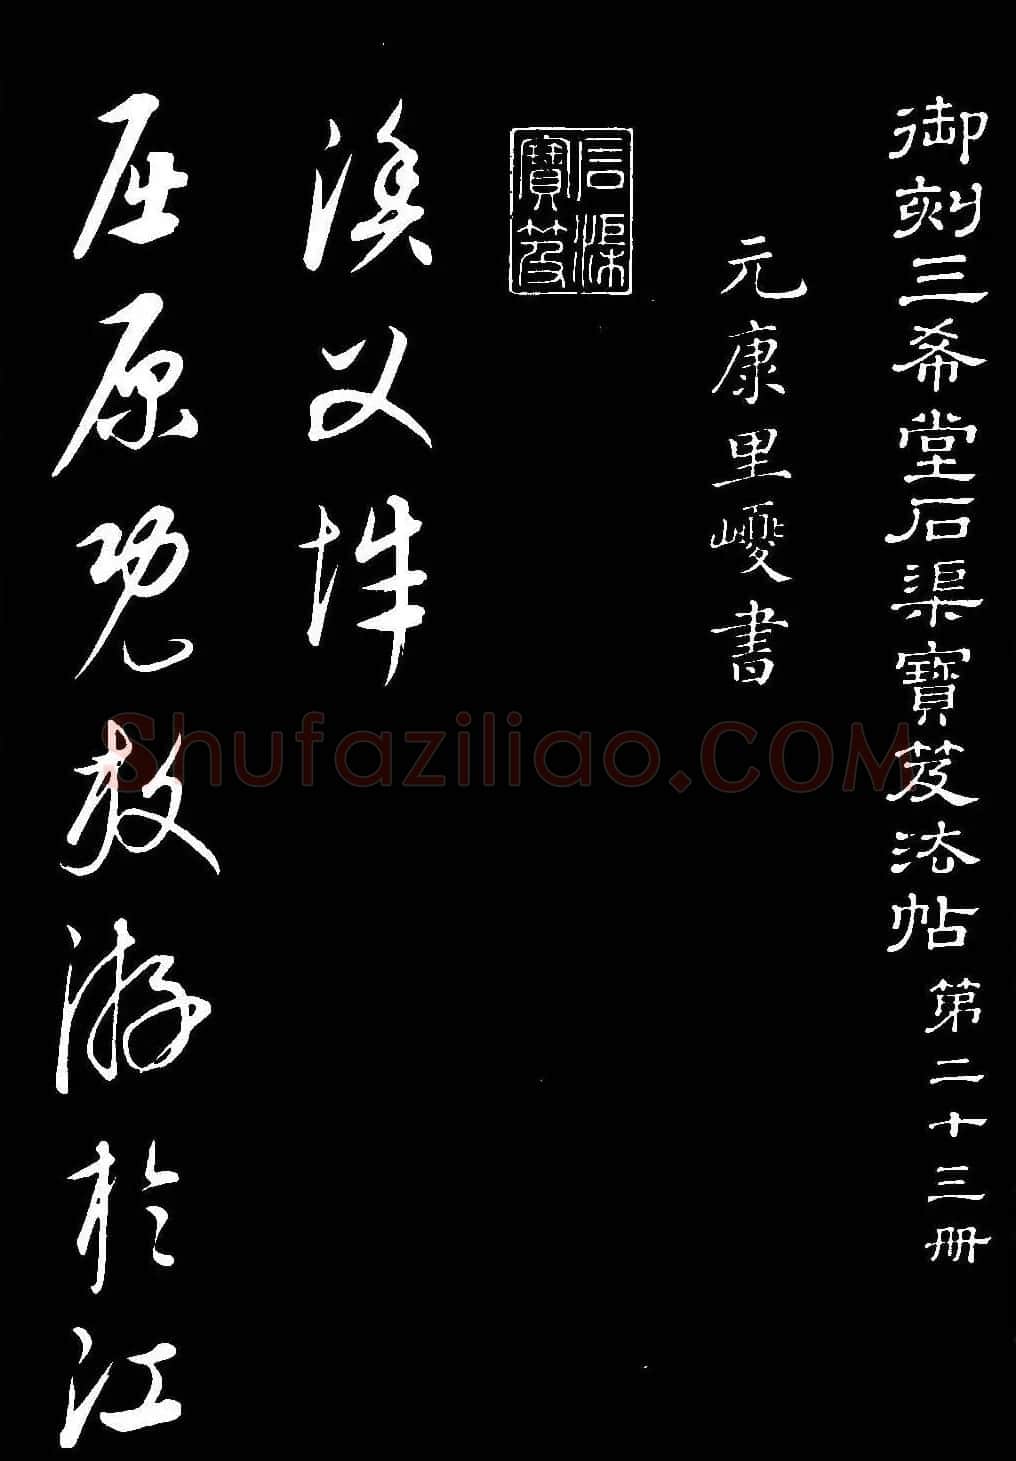 御刻三希堂石渠寶笈法帖第二十三册
元康里巙書
石渠寶笈
漁父辭
屈原既放游於江
Shufaziliao.COM